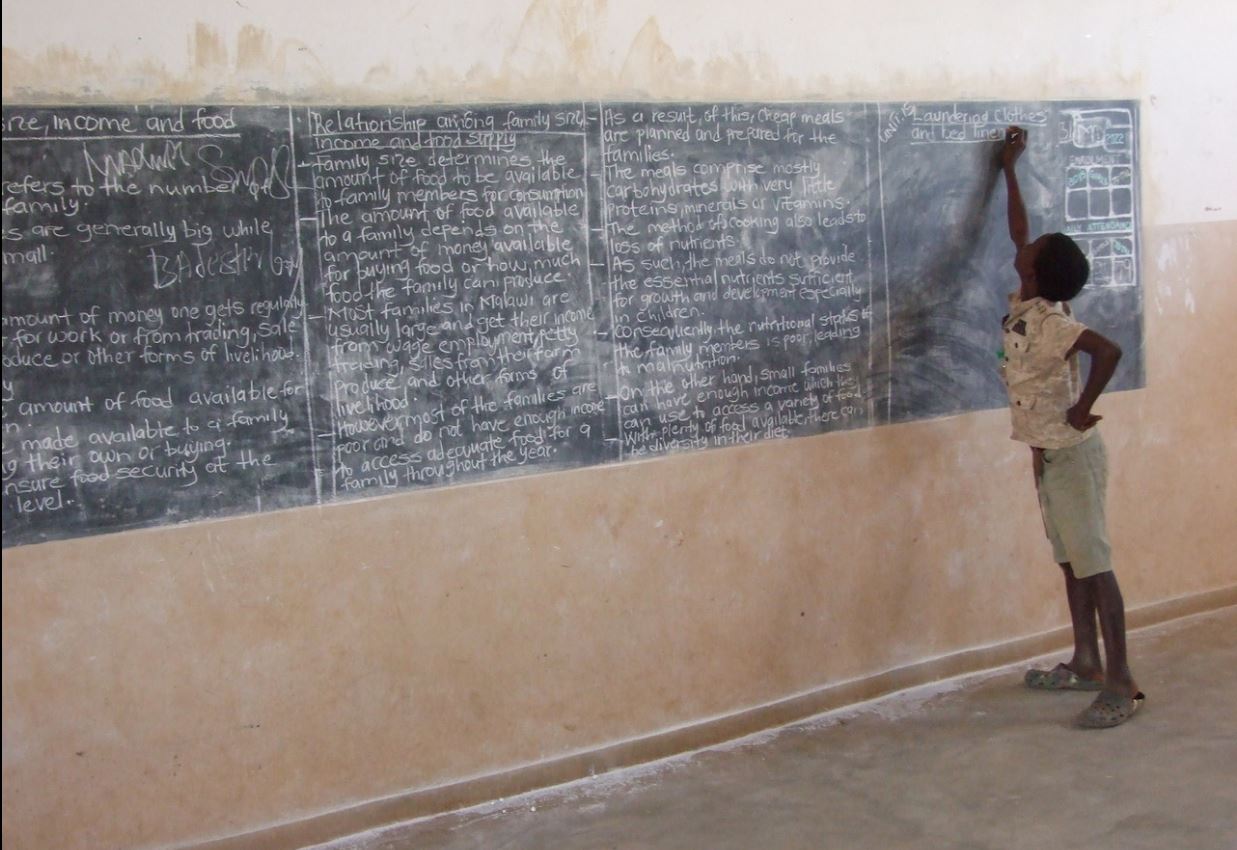 size, income and food
refers to the number of
family.
s are generally big while
mall.
amount of money one gets regularly
for work or from trading, sale
oduce or other forms of livelihood.
y
amount of food available for
n.
made available to a family
g their own or buying.
nsure food security at the
level.
Relationship among family size,
income and food supply
- Family size determines the
amount of food to be available
to family members for consumption
- The amount of food available
to a family depends on the
amount of money available
for buying food or how much
food the family can produce.
- Most families in Malawi are
usually large and get their income
from wage employment, petty
trading, sales from their farm
produce and other forms of
livelihood.
- However most of the families are
poor and do not have enough income
to access adequate food for a
family throughout the year.
- As a result, of this, cheap meals
are planned and prepared for the
families.
- The meals comprise mostly
carbohydrates with very little
proteins, minerals or vitamins.
- The method of cooking also leads to
loss of nutrients.
- As such, the meals do not provide
the essential nutrients sufficient
for growth and development especially
in children.
- Consequently, the nutritional status of
the family members is poor, leading
to malnutrition.
- On the other hand, small families
can have enough income which they
can use to access a variety of food
- With plenty of food available there can
be diversity in their diet.
Laundering clothes
and bed linen
2022
ENROLMENT
DAILY ATTENDANCE